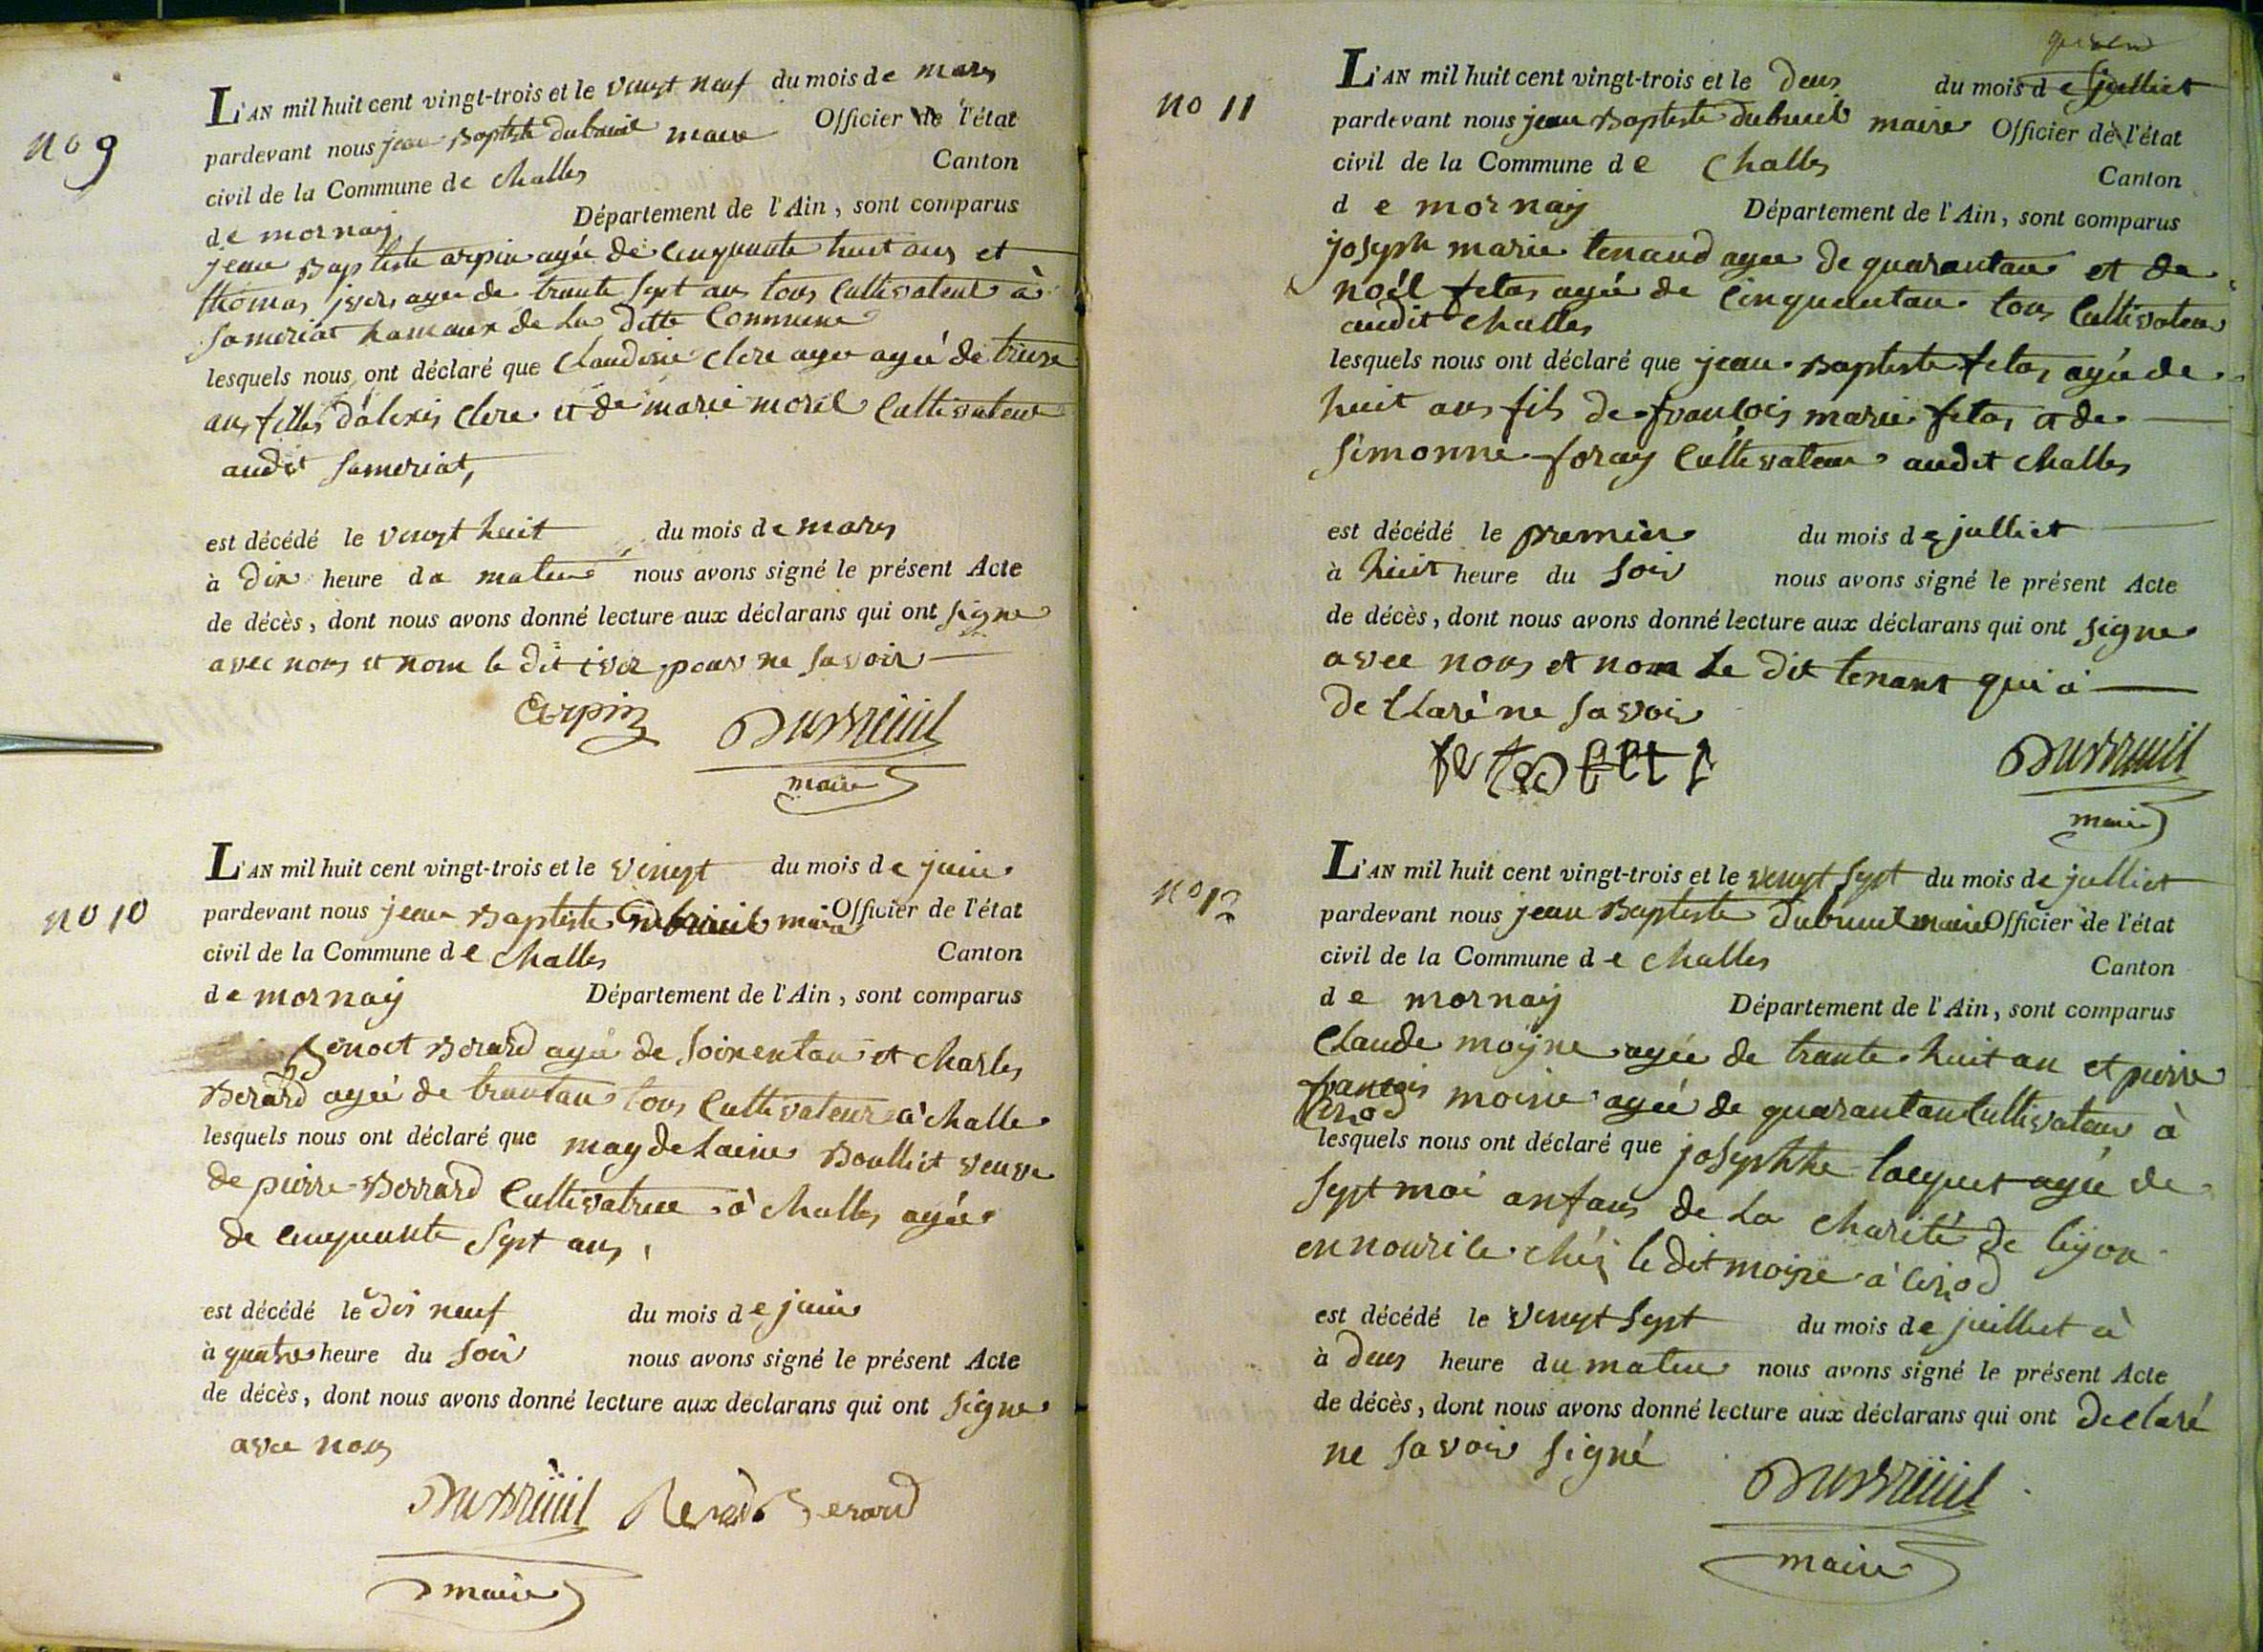 no 9
L'AN mil huit cent vingt-trois et le vingt neuf du mois de mars
pardevant nous jean Baptiste dubreuil maire Officier de l'état
civil de la Commune de challes Canton
de mornay Département de l'Ain, sont comparus
jean Baptiste arpin agée de cinquante huit ans et
thomas agée de trante sept ans tous Cultivateur à
Sameriat hamaux de La ditte Commune
lesquels nous ont déclaré que Claudine clere agée agée de treise
ans filles d'alexis clere et de marie morel Cultivateur
audit Sameriat,
est décédé le vingt huit du mois de mars
à dix heure da matin nous avons signé le présent Acte
de décès, dont nous avons donné lecture aux déclarans qui ont signe
avec nous et nom le dit pour ne savoir
arpin Dubreüil
maire
no 10
L'AN mil huit cent vingt-trois et le vingt du mois de juin
pardevant nous jean Baptiste dubreuil maire Officier de l'état
civil de la Commune de challes Canton
de mornay Département de l'Ain, sont comparus
Benoit Berard agée de soixentan et charles
Berard agée de trantan tous Cultivateur à challe
lesquels nous ont déclaré que maydelaine Boulliet veuve
de pierre Berrard Cultivatrice à challes agée
de cinquante sept ans,
est décédé le dix neuf du mois de juin
à quatre heure du soir nous avons signé le présent Acte
de décès, dont nous avons donné lecture aux declarans qui ont signe
avec nous
Dubreüil Berard Berard
maire
no 11
L'AN mil huit cent vingt-trois et le deux du mois de julliet
pardevant nous jean Baptiste dubreuil maire Officier de l'état
civil de la Commune de challes Canton
de mornay Département de l'Ain, sont comparus
joseph marie tenand agée de quarantan et de
noél fetas agée de cinquantan tous Cultivateur
audit challes
lesquels nous ont déclaré que jean Baptiste fetas agée de
huit ans fils de françois marie fetas et de
Simonne foray Cultivateur audit challes
est décédé le premier du mois de julliet
à huit heure du soir nous avons signé le présent Acte
de décès, dont nous avons donné lecture aux déclarans qui ont signe
avec nous et nom Le dit tenant qui à
declaré ne savoir
Dubreuil
maire
no 12
L'AN mil huit cent vingt-trois et le vingt sept du mois de julliet
pardevant nous jean Baptiste dubreuil maire Officier de l'état
civil de la Commune de challes Canton
de mornay Département de l'Ain, sont comparus
Claude moyne agée de trante huit an et pierre
françois moine agée de quarantan Cultivateur à
Cirod
lesquels nous ont déclaré que josephte lacquet agée de
sept moi anfans de La charité de liyon
en nourice chéz le dit moyne à Cirod
est décédé le vingt sept du mois de juillet à
à deux heure du matin nous avons signé le présent Acte
de décès, dont nous avons donné lecture aux déclarans qui ont declaré
ne savoir signé
Dubreüil
maire